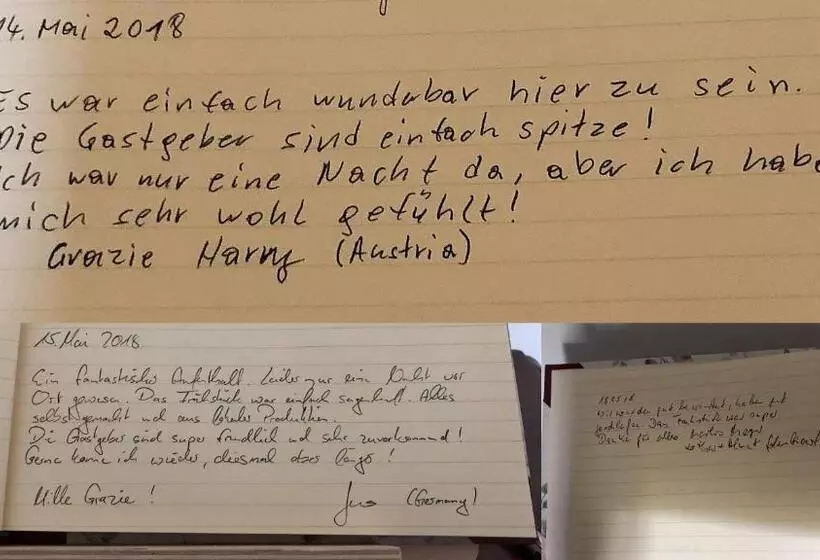 14. Mai 2018
Es war einfach wunderbar hier zu sein.
Die Gastgeber sind einfach spitze!
Ich war nur eine Nacht da, aber ich habe
mich sehr wohl gefühlt!
Grazie Harry (Austria)
15. Mai 2018
Ein fantastischer Aufenthalt. Leider nur eine Nacht vor
Ort gewesen. Das Frühstück war einfach sagenhaft. Alles
selbstgemacht und aus lokaler Produktion.
Die Gastgeber sind super freundlich und sehr zuvorkommend!
Gerne komme ich wieder, diesmal aber länger!
Mille Grazie!
(Germany)
wir wurden gut bewirtet, haben gut
Das Frühstück war super
Danke für alles